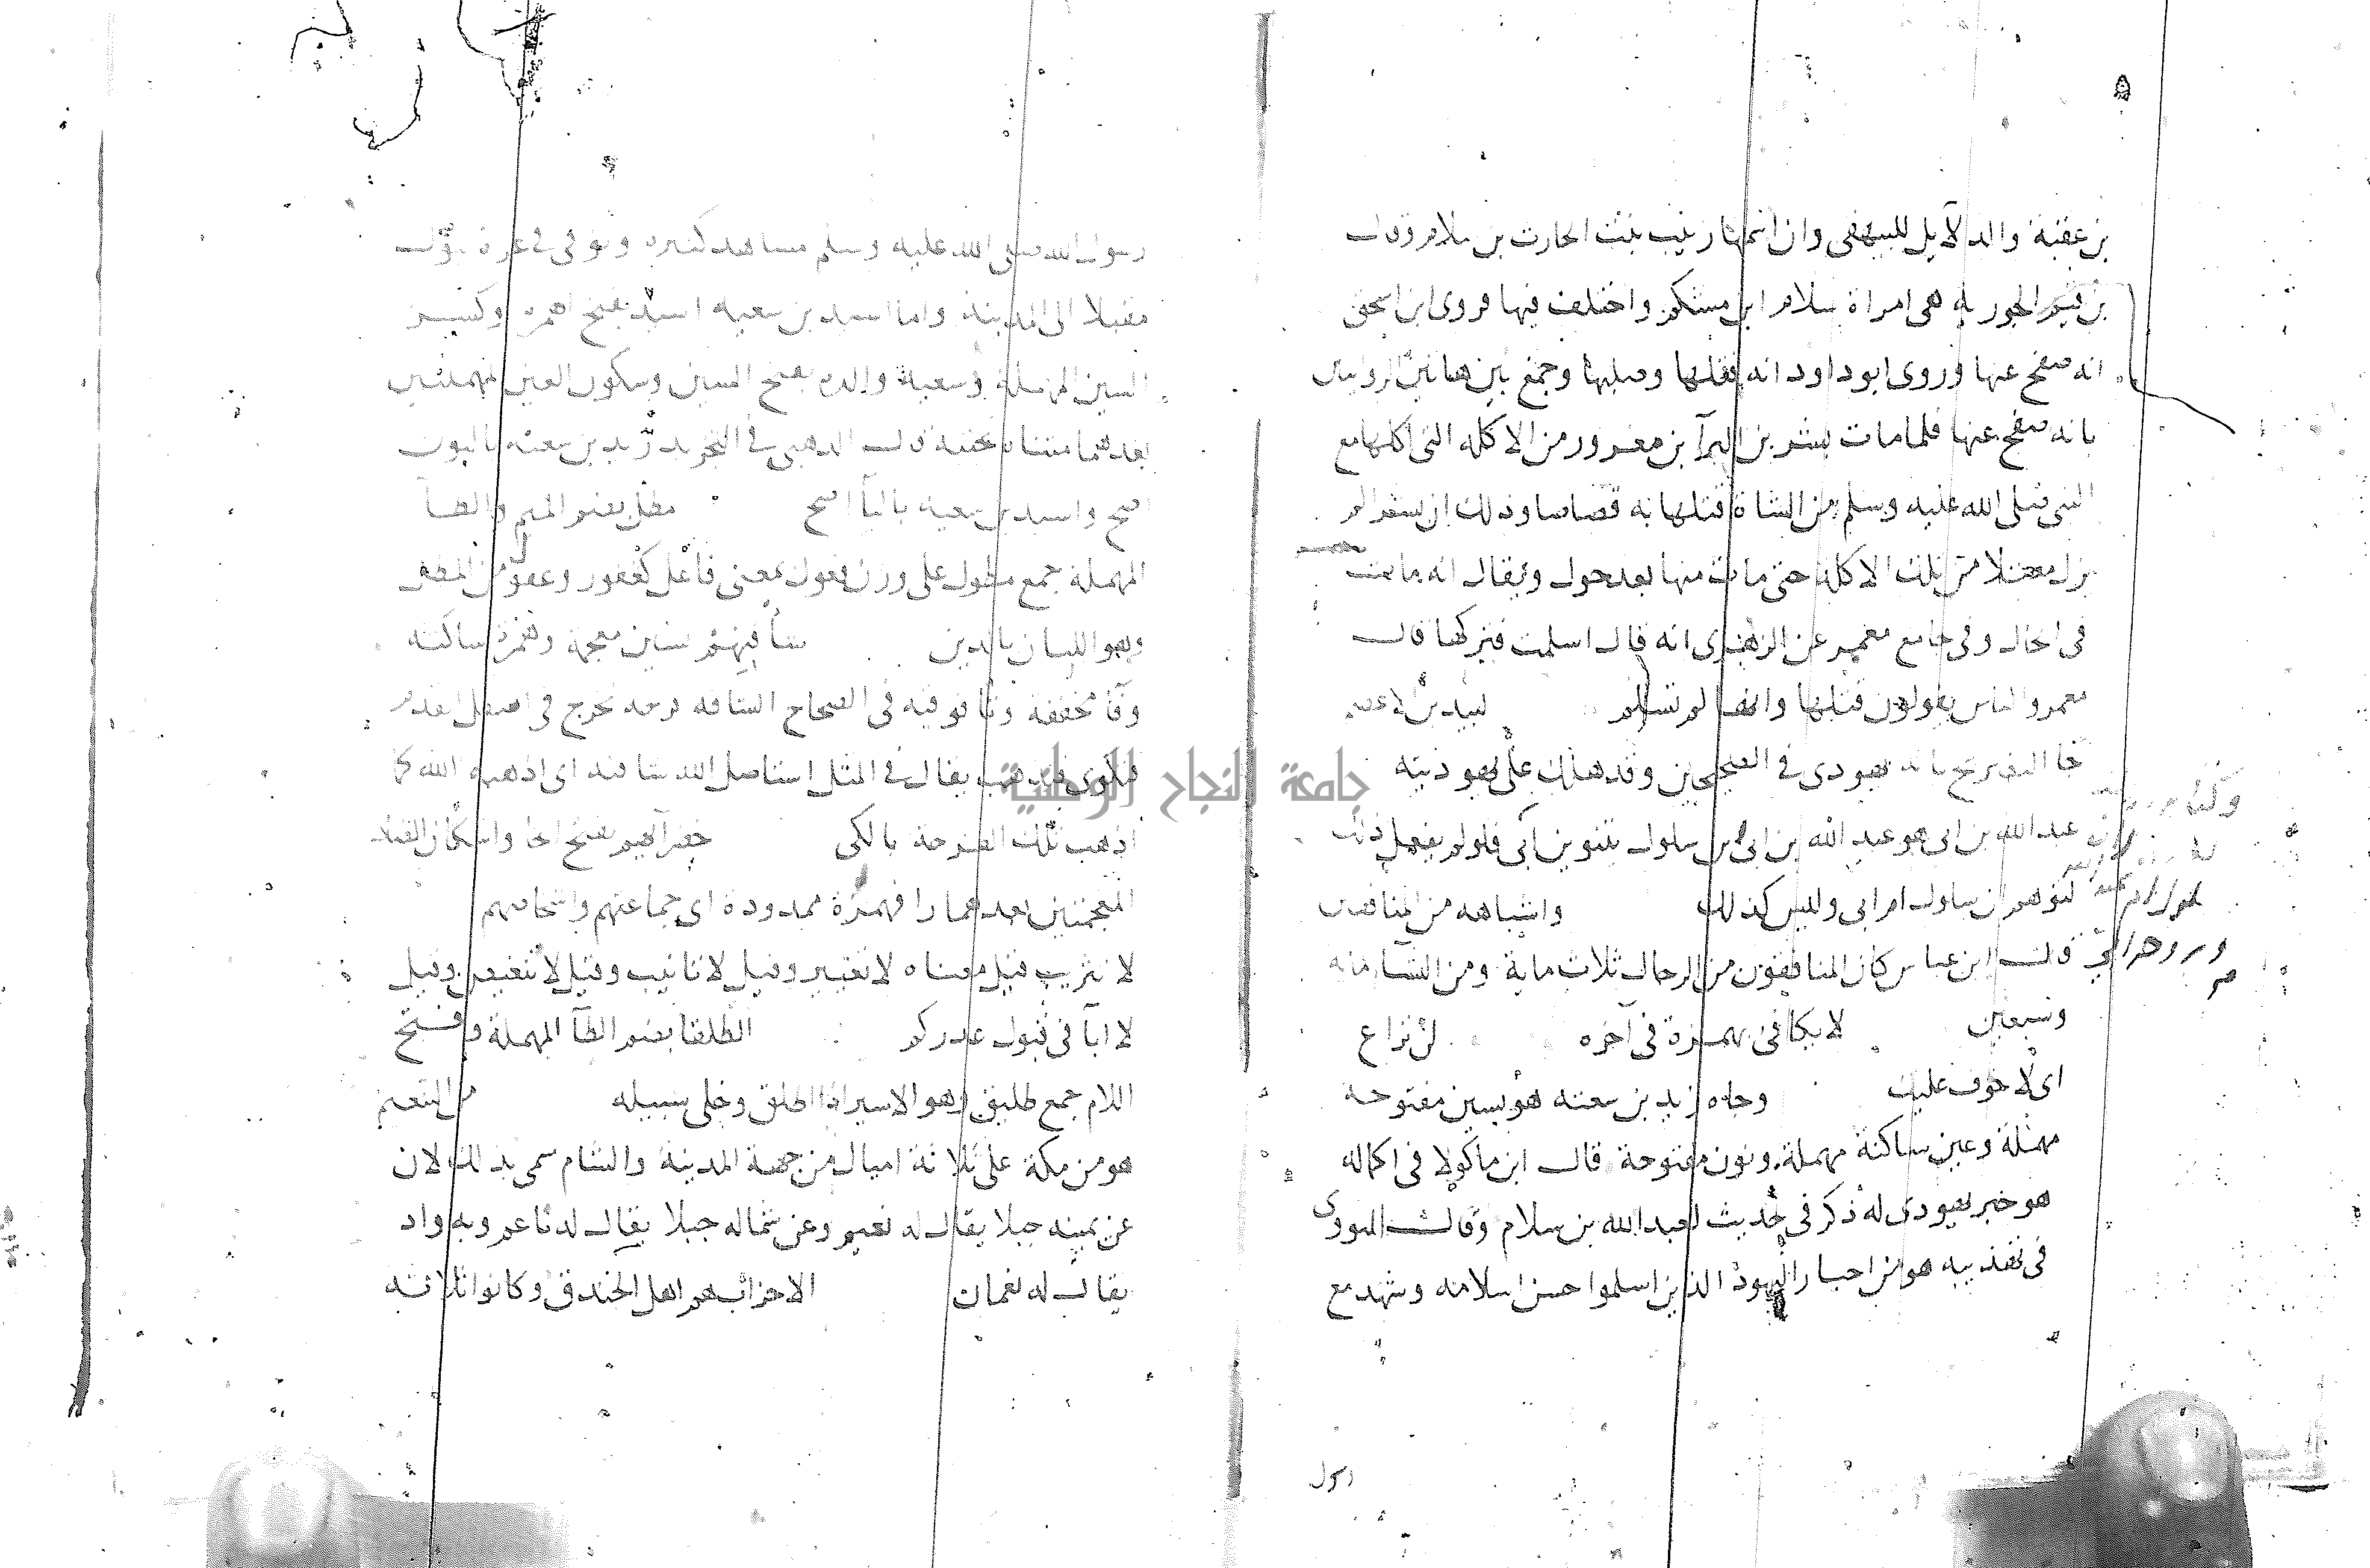 بن عقبة والدلايل للبيهقى وان اسمها زينب بنت الحارث بن سلام وقال
بن قيم الجوزية هى امراة سلام ابن مشكم واختلف فيها فروى ابن اسحق
انه صفح عنها وروى ابو داود انه قتلها وصلبها وجمع بين هاتين الروايتين
بانه صفح عنها فلما مات بشر بن البرآ بن معرور من الاكلة التى اكلها مع
النبى صلى الله عليه وسلم من الشاة قتلها به قصاصا وذلك ان بشر لم
يزل معتلا من تلك الاكلة حتى مات منها بعد حول ويقال انه مات
فى الحال وفى جامع معمر عن الزهرى انه قال اسلمت فتركها قال
معمر والناس يقولون قتلها وانها لم تسلم لبيد بن الاعصم
جا التصريح بانه يهودى فى الصحيحين وقد هلك على يهوديته
عبد الله بن ابى هو عبد الله بن ابى بن سلول بتنوين ابى فلو لم يفعل ذلك
لتوهم ان سلول ام ابى وليس كذلك واشباهه من المنافقين
قال ابن عباس كان المنافقون من الرجال ثلاث ماية ومن النسآ ماية
وسبعين لا يكافى بهمزة فى آخره لن تراع
اى لا خوف عليك وجاه زيد بن سعنه هو بسين مفتوحة
مهملة وعين ساكنة مهملة ونون مفتوحة قال ابن ماكولا فى اكماله
هو خبر يهودى له ذكر فى حديث لعبد الله بن سلام وقال النووى
فى تهذيبه هو من احبار اليهود الذين اسلموا حسن اسلامه وشهد مع
رسول
رسول الله صلى الله عليه وسلم مشاهد كثيره وتوفى فى غزوة تبوك
مقبلا الى المدينة واما اسيد بن سعيه اسيد بفتح الهمزه وكسر
السين المهملة وسعية والده بفتح السين وسكون العين المهملتين
بعدهما مثناه تحتية قال الذهبى فى التجريد زيد بن سعنه بالنون
اصح واسيد بن سعيه باليآ اصح مطل بضم الميم والطآ
المهملة جمع مطول على وزن فعول بمعنى فاعل كغفور وعفو من المطل
وهو الليان بالدين شأفتهم بشين معجمة وهمزة ساكنه
وفآ مخففة وتا فوقيه فى الصحاح الشافه قرحه تخرج فى اسفل القدم
فتكوى فتذهب يقال فى المثل استاصل الله شافته اى اذهبه الله كما
اذهب تلك القرحة بالكى خضرآهم بفتح الخا واسكان الضاد
المعجمتين بعدهما را فهمزة ممدودة اى جماعتهم واشخاصهم
لا تثريب قيل معناه لا تعيير وقيل لا تانيب وقيل لا تنغيص وقيل
لا ابآ فى قبول عذركم الطلقا بضم الطآ المهملة وفتح
اللام جمع طليق وهو الاسير اذا اطلق وخلى سبيله من التنعيم
هو من مكة على ثلاثة اميال من جهة المدينة والشام سمى بذلك لان
عن يمينه جبلا يقال له نعيم وعن شماله جبلا يقال له ناعم وبه واد
يقال له نعمان الاحزاب هم اهل الخندق وكانوا ثلاثه
جامعة النجاح الوطنية